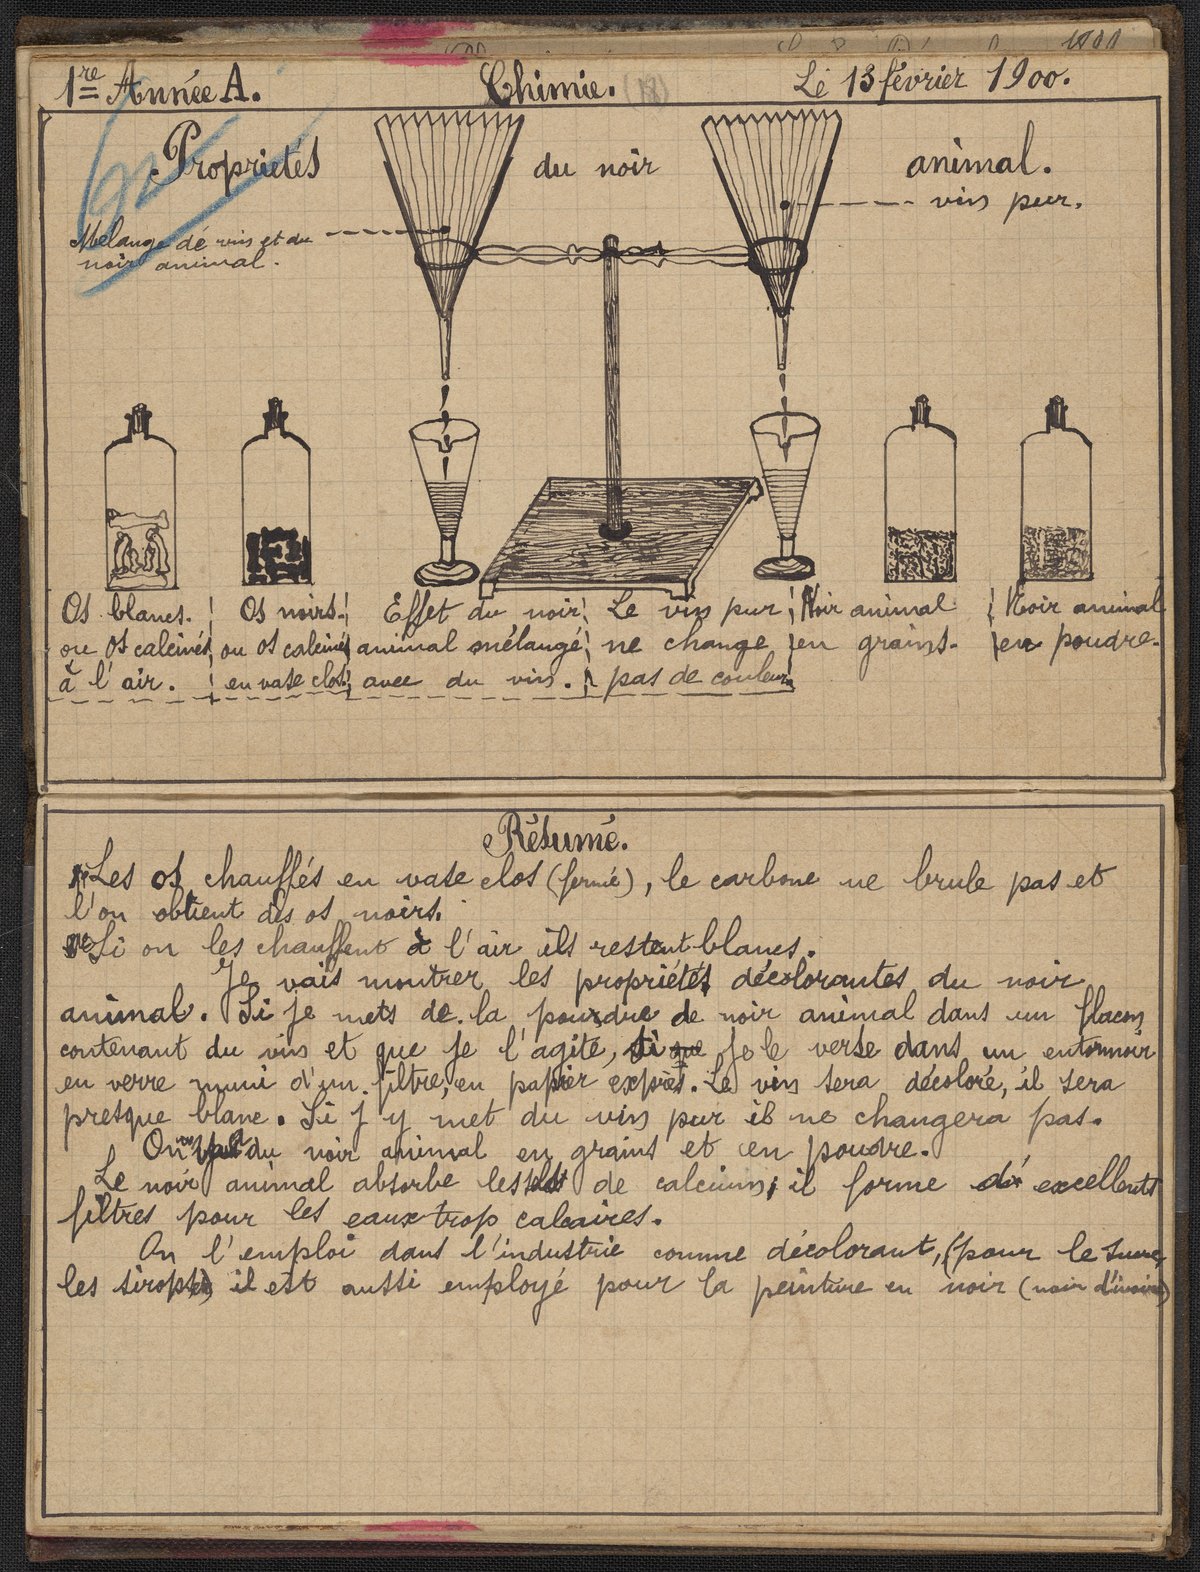 1re Année A. Chimie. (18) Le 13 février 1900.
Proprietés du noir animal.
vin pur.
Mélange de vin et du
noir animal.
Os blancs.
ou os calcinés
à l'air.
Os noirs.
ou os calcinés
en vase clos.
Effet du noir
animal mélangé
avec du vin.
Le vin pur
ne change
pas de couleur
Noir animal
en grains.
Noir animal
en poudre.
Résumé.
Les os chauffés en vase clos (fermé), le carbone ne brule pas et
l'on obtient des os noirs.
Si on les chauffent à l'air ils restent blancs.
Je vais montrer les propriétés décolorantes du noir
animal. Si je mets de la poudre de noir animal dans un flacon
contenant du vin et que je l'agite, si que je le verse dans un entonnoir
en verre muni d'un filtre, en papier exprès. Le vin sera décoloré, il sera
presque blanc. Si j y met du vin pur il ne changera pas.
On du noir animal en grains et en poudre.
Le noir animal absorbe les de calcium, il forme de excellents
filtres pour les eaux trop calcaires.
On l'emploi dans l'industrie comme décolorant, (pour le sucre,
les sirops) il est aussi employé pour la peinture en noir (noir d'ivoire)